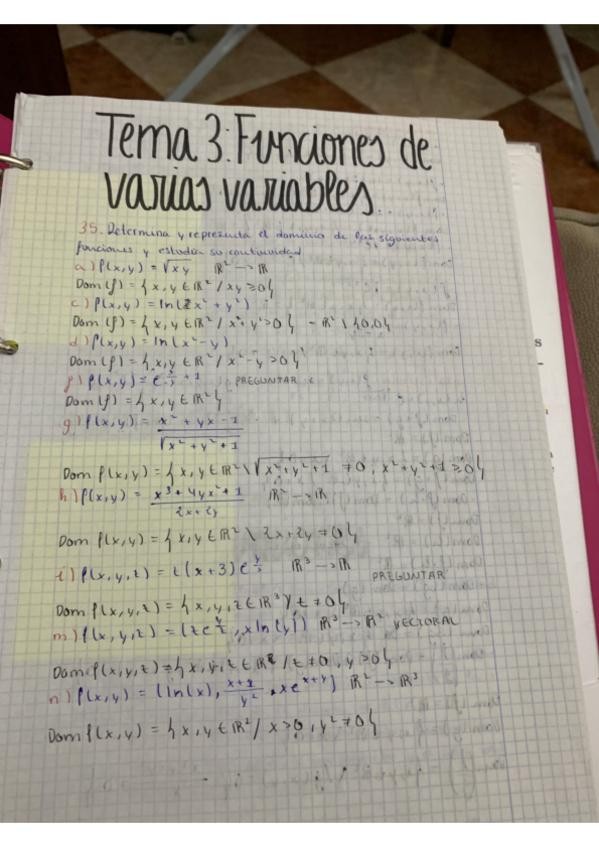 Tema 3: Funciones de
varias variables.
35. Determina y representa el dominio de las siguientes
funciones y estudia su continuidad
a) f(x,y) = √xy ℝ² → ℝ
Dom(f) = { x, y ∈ ℝ² / xy ≥ 0 }
c) f(x,y) = ln(2x² + y²)
Dom(f) = { x, y ∈ ℝ² / x² + y² > 0 } - ℝ² \ {0,0}
d) f(x,y) = ln(x² - y)
Dom(f) = { x, y ∈ ℝ² / x² - y > 0 }
f) f(x,y) = e + 1 PREGUNTAR
Dom(f) = { x, y ∈ ℝ² }
g) f(x,y) = x² + yx - 1
√x² + y² + 1
Dom f(x,y) = { x, y ∈ ℝ² \ √x² + y² + 1 ≠ 0, x² + y² + 1 ≥ 0 }
h) f(x,y) = x³ + 4yx² + 1 ℝ² → ℝ
2x + 2y
Dom f(x,y) = { x, y ∈ ℝ² \ 2x + 2y ≠ 0 }
i) f(x,y,z) = z(x + 3)e ℝ³ → ℝ
PREGUNTAR
Dom f(x,y,z) = { x, y, z ∈ ℝ³ / z ≠ 0 }
m) f(x,y,z) = (ze^(y/z), x ln(y)) ℝ³ → ℝ² VECTORAL
Dom f(x,y,z) = { x, y, z ∈ ℝ / z ≠ 0, y > 0 }.
n) f(x,y) = (ln(x), y², xe^(x+y)) ℝ² → ℝ³
Dom f(x,y) = { x, y ∈ ℝ² / x > 0, y² ≠ 0 }